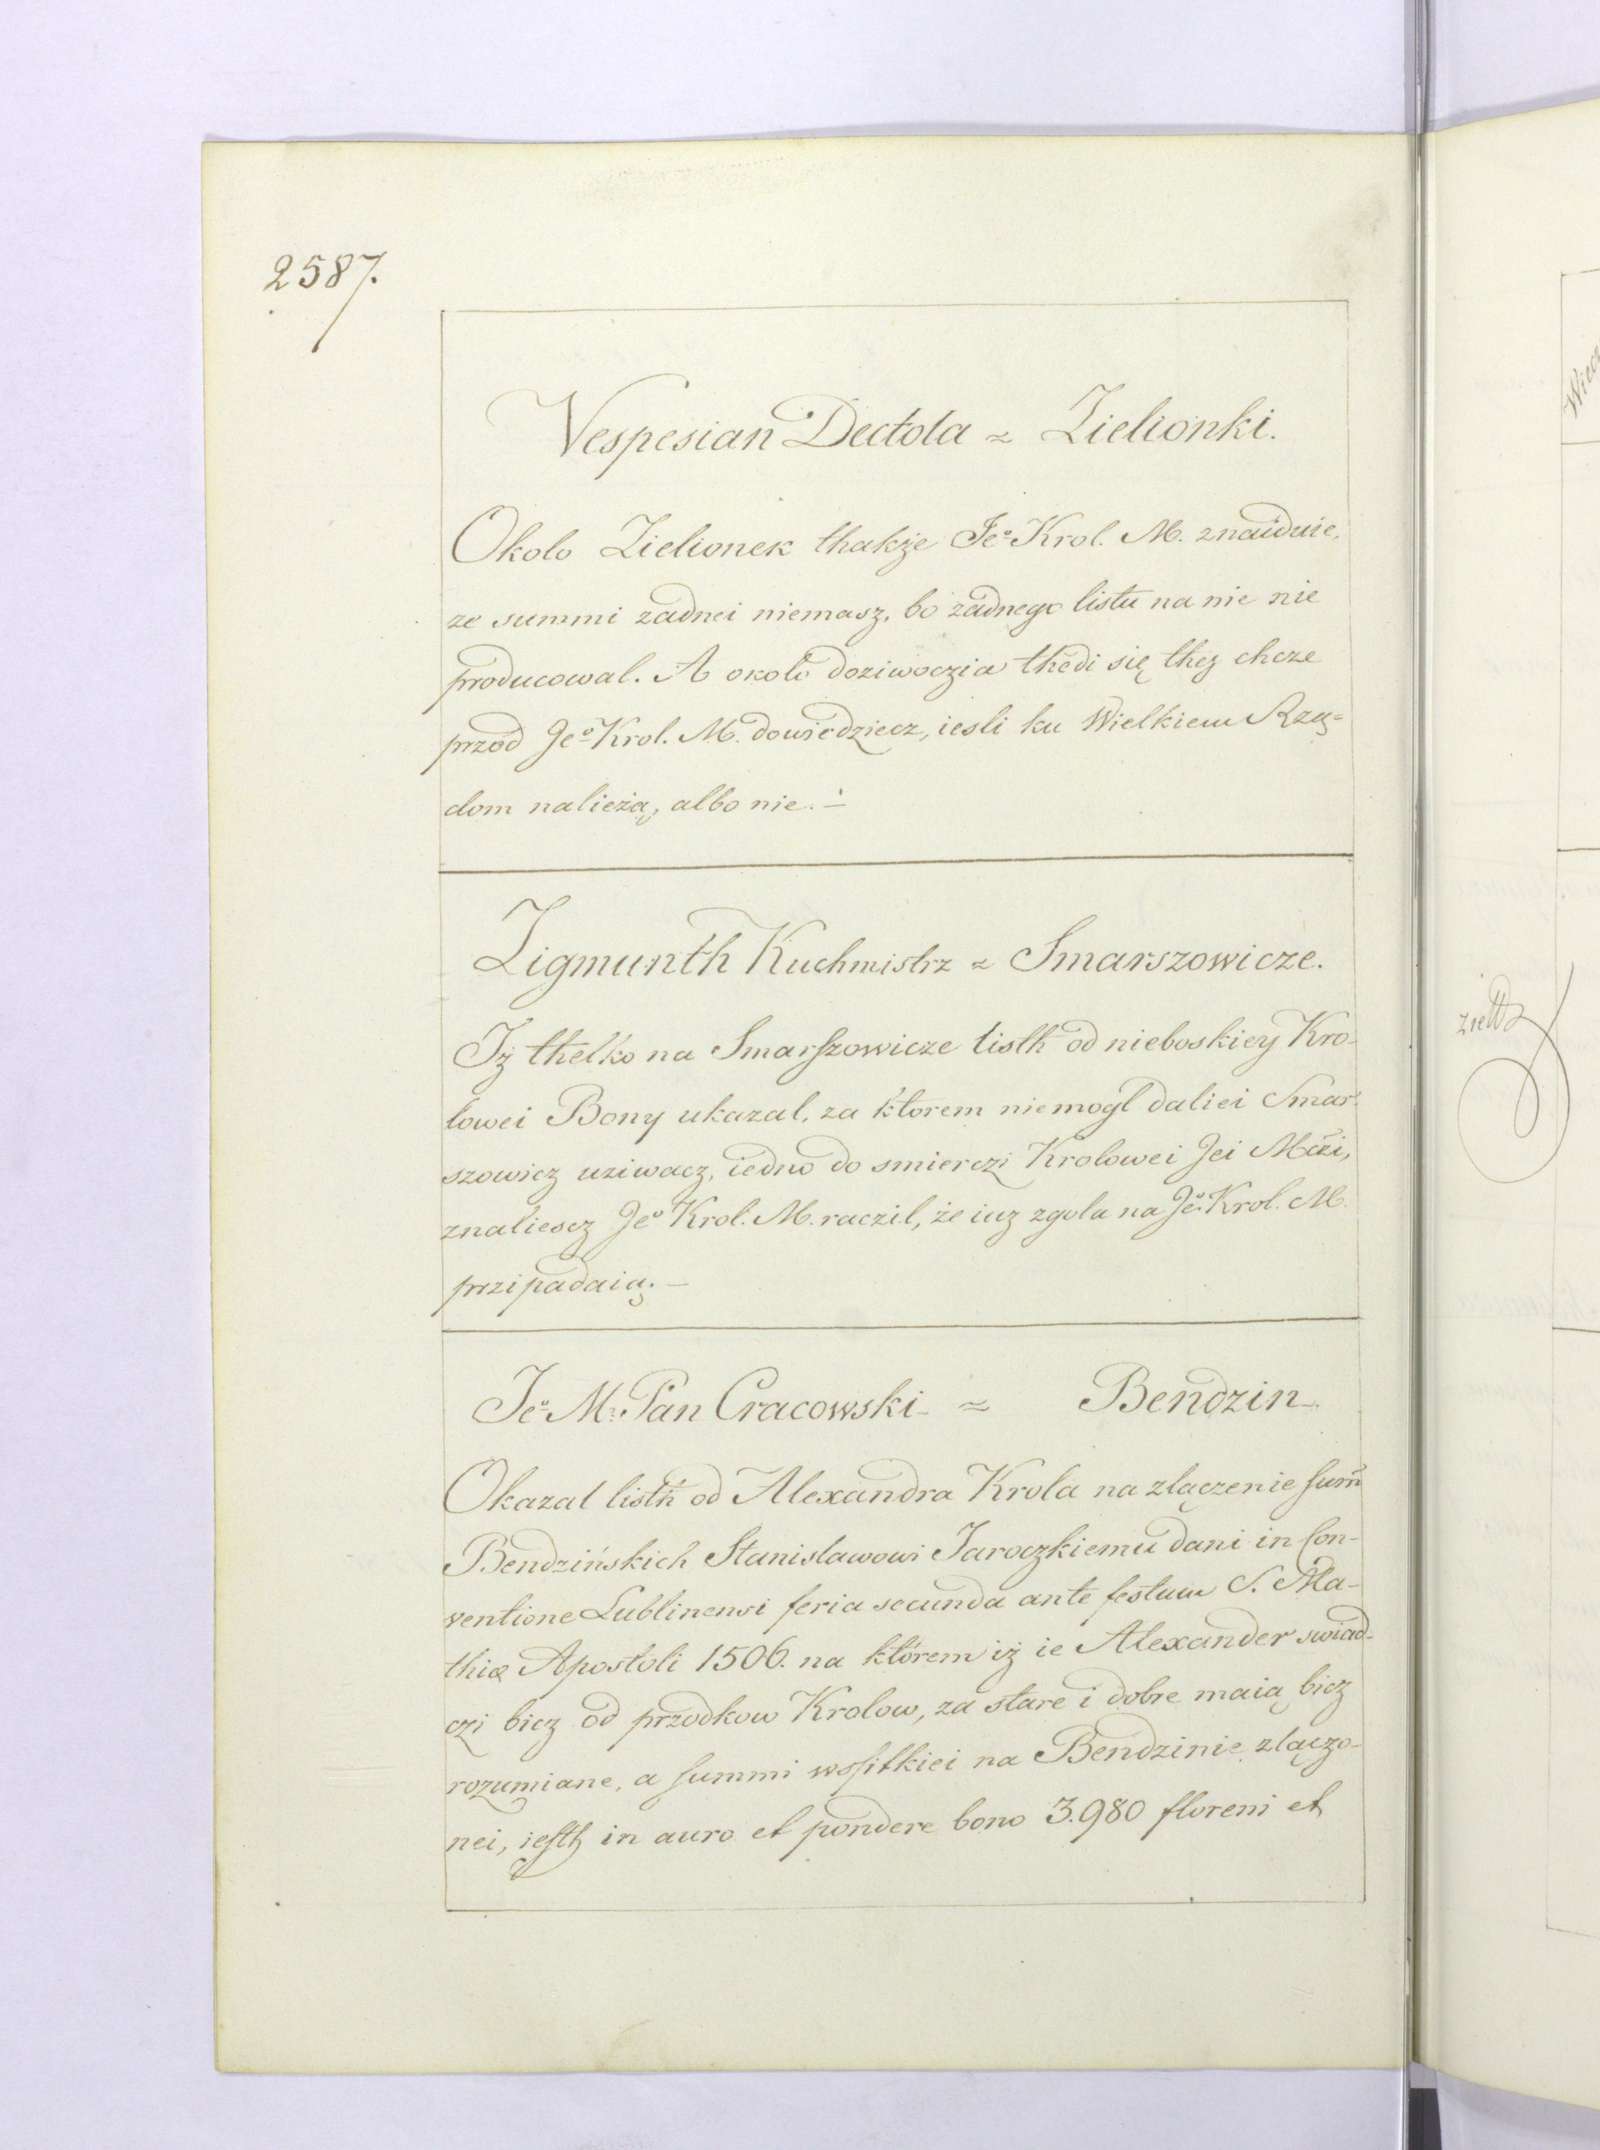 2587.
Vespesian Dectota ~ Zielionki.
Okolo Zielionek thakże Jeº Krol. M. znaiduie,
ze summi zadnei niemasz, bo zadnego listu na nie nie
producowal. A okolo doziwoczia thedi się thez chcze
przod Jeº Krol. M. dowiedziecz, iesli ku Wielkiem Rzą=
dom nalieżą, albo nie. –
Zigmunth Kuchmistrz ~ Smarszowicze.
Iż thelko na Smarszowicze listh od nieboskiey Kro-
lowei Bony ukazal, za ktorem niemogl daliei Smar-
szowicz uziwacz, iedno do smierczi Krolowei Jei Mczi,
znaliescz Jeº Krol. M. raczil, że iuz zgola na Jeº Krol. M.
przipadaią. –
Jeº M. Pan Cracowski ~ Bendzin
Okazal listh od Alexandra Krola na zlączenie summ
Bendzińskich Stanislawowi Jaroczkiemu dani in Con-
ventione Lublinensi feria secunda ante festum S. Ma-
thiæ Apostoli 1506. na którem iż ie Alexander swiad-
czi bicz od przodkow Krolow, za stare i dobre maią bicz
rozumiane, a summi wssitkiei na Bendzinie zlączo-
nei, iesth in auro et pondere bono 3.980 floreni et